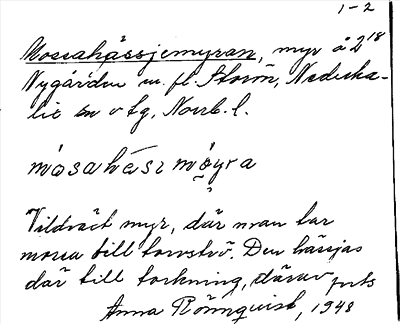 1-2
Mossahässjemyran, myr å 2¹⁸
Nygården m. fl. Storön, Nederka-
lix sn o tg, Norrb. l.
mòsahési mo̬yra
Vildväxt myr, där man tar
mossa till torvströ. Den hässjas
där till torkning, därav
Anna Rönnquist, 1948